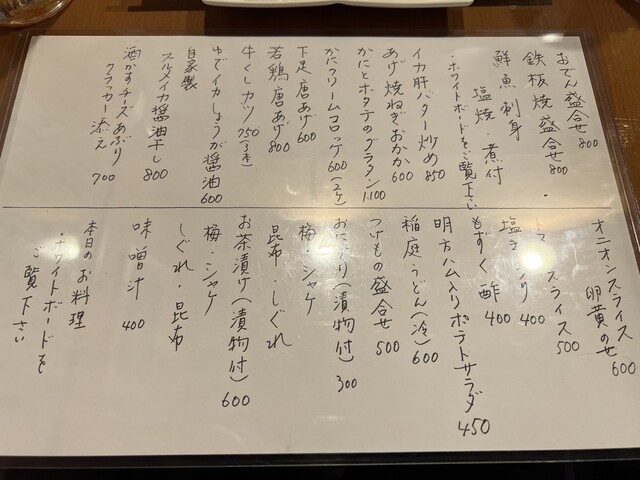 おでん盛合せ 800
鉄板焼盛合せ 800
鮮魚刺身
塩焼・煮付
・ホワイトボードをご覧下さい
イカ肝バター炒め 850
あげ焼ねぎおかか 600
かにとホタテのグラタン 1,100
かにクリームコロッケ 600(2ケ)
下足唐あげ 600
若鶏唐あげ 800
牛くしカツ 750(3本)
ゆでイカしょうが醤油 600
自家製
スルメイカ醤油干し 800
酒かすチーズあぶり
クラッカー添え 700
オニオンスライス
卵黄のせ 600
スライス 500
400
もずく酢 400
明方ハム入りポテトサラダ 450
稲庭うどん(冷) 600
つけもの盛合せ 500
おにぎり(漬物付) 300
梅・シャケ
昆布・しぐれ
お茶漬け(漬物付) 600
梅・シャケ
しぐれ・昆布
味噌汁 400
本日のお料理
・ホワイトボードを
ご覧下さい